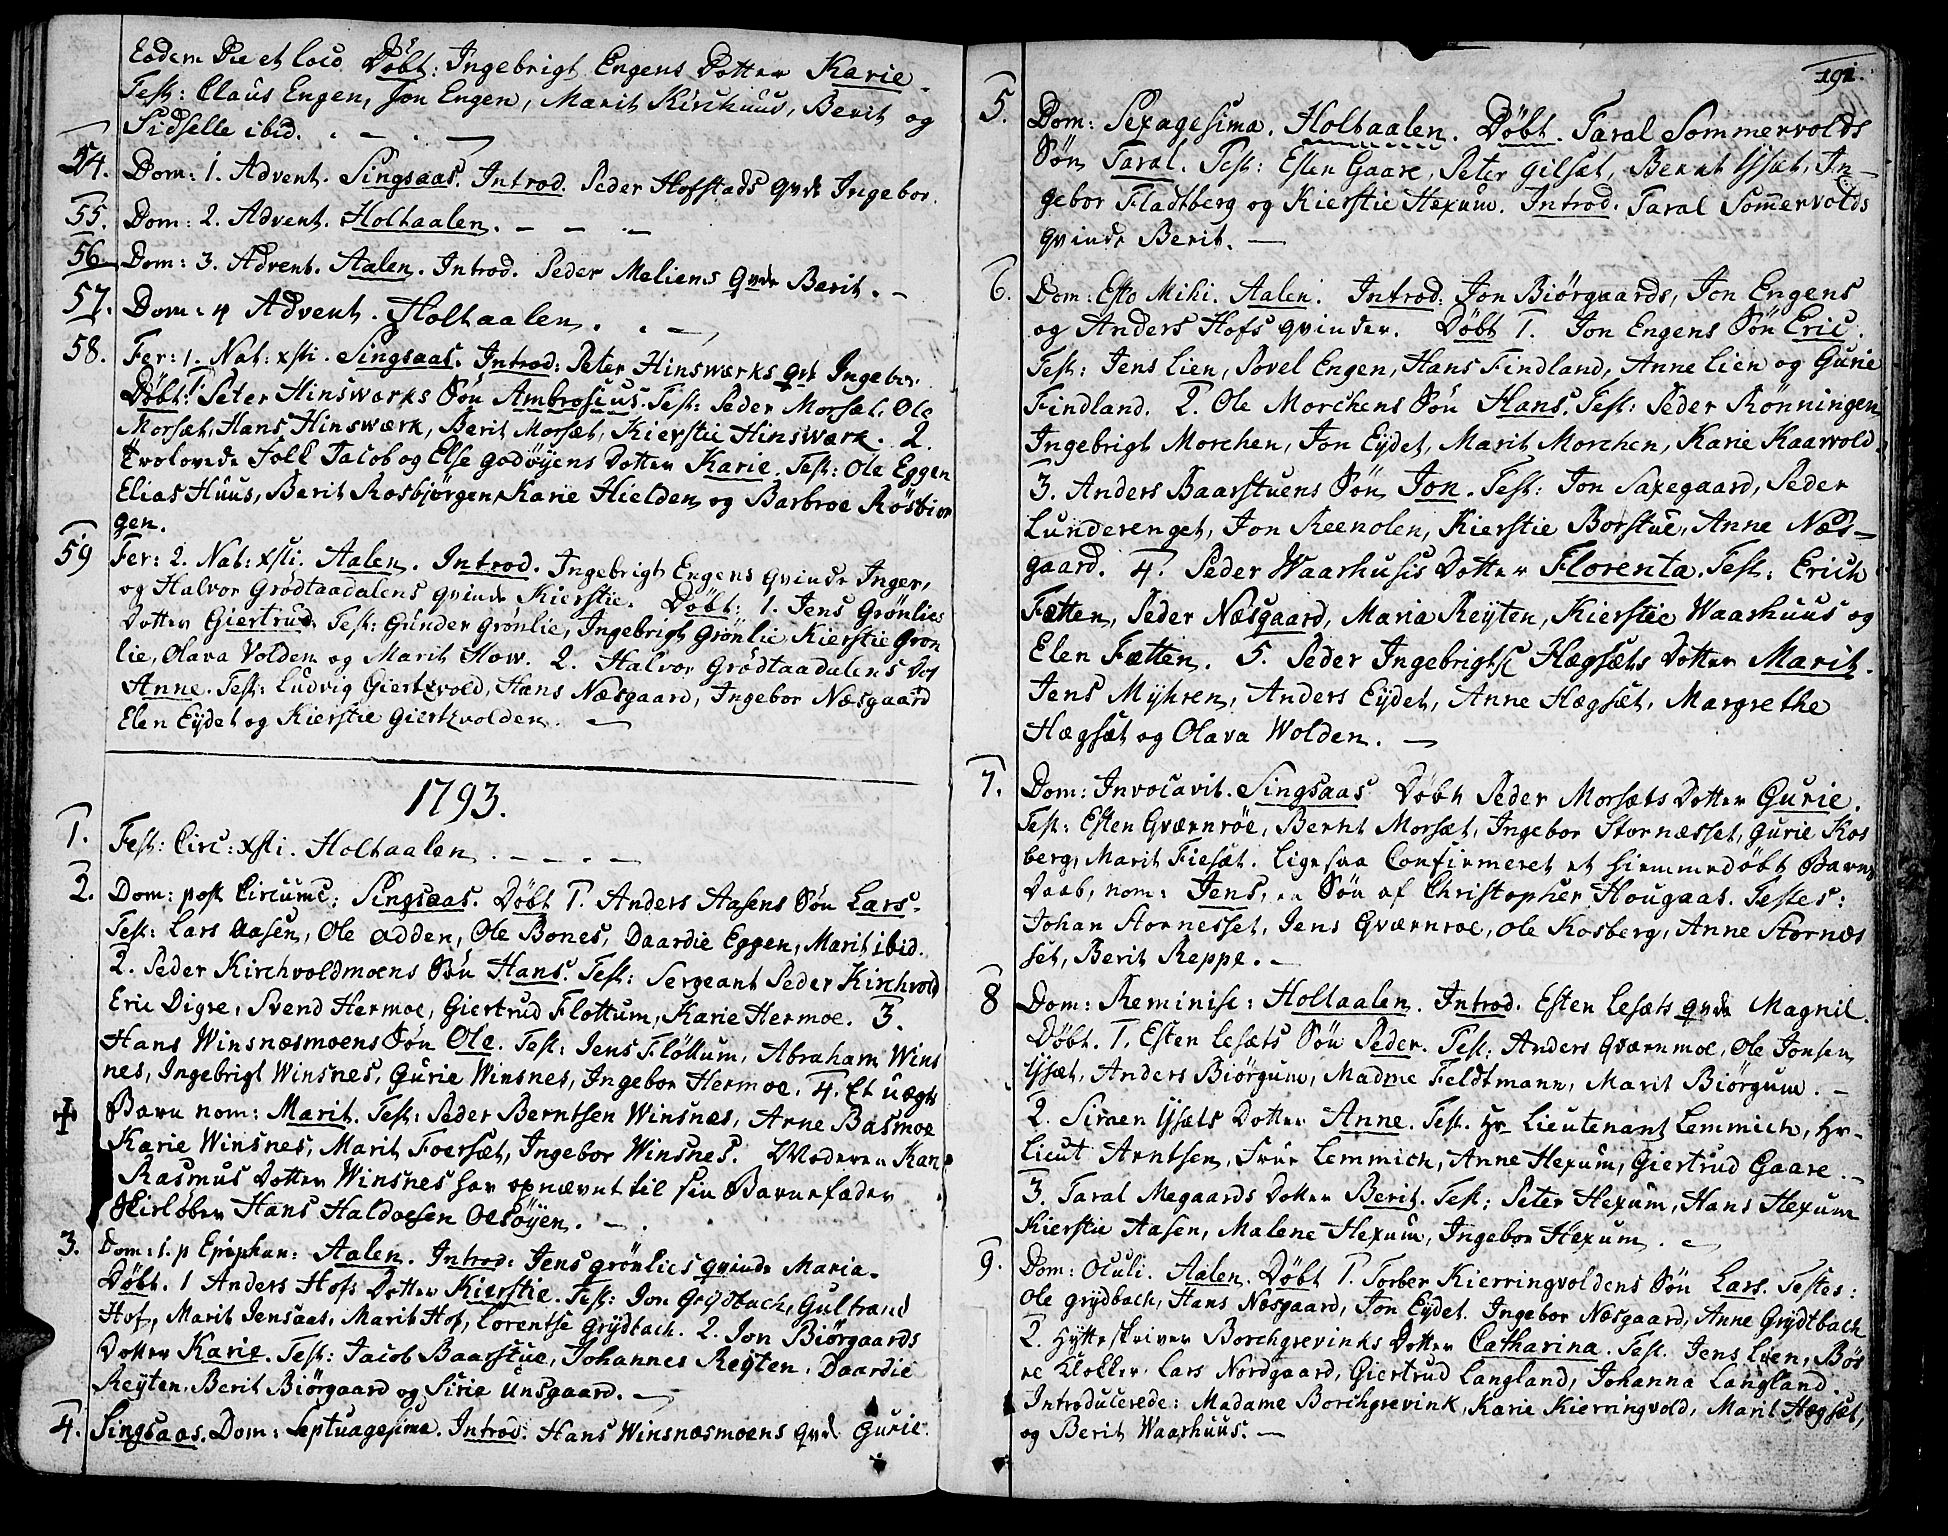 Eodem Die et loco Døbt: Ingebrigt Engens Dotter Karie.
Test: Claus Engen, Jon Engen, Marit Kirchuus, Berit og
Sidselle ibid. . — . —
54. Dom: 1. Advent. Singsaas. Introd. Peder Hofstads qvde Ingebor.
55. Dom: 2. Advent. Holtaalen. — — —
56. Dom: 3. Advent. Aalen. Introd. Peder Meliens qvde Berit. —
57. Dom: 4 Advent. Holtaalen. . . —
58. Fer: 1. Nat: xsti. Singsaas. Introd: Peter Hinswærks qvd Ingebor.
Døbt: Peter Hinswerks Søn Ambrosius. Test: Peder Morsæt, Ole
Morsæt, Hans Hinswærk, Berit Morsæt, Kierstie Hinswærk. 2.
Trolovede Folk Jacob og Else Godøyens Dotter Karie. Test: Ole Eggen
Elias Huus, Berit Rosbjørgen, Karie Hielden og Barbroe Røsbiør
gen.
59 Fer: 2. Nat: xsti. Aalen. Introd. Ingebrigt Engens qvinde Inger,
og Halvor Grødtaadalens qvinde Kierstie. Døbt: 1. Jens Grønlies
Dotter Giertrud. Test: Gunder Grønlie, Ingebrigt Grønlie Kierstie Grøn
lie, Olava Volden og Marit How. 2. Halvor Grødtaadalens Dot
Anne. Test: Ludvig Giertzvold, Hans Næsgaard, Ingebor Næsgaard
Elen Eydet og Kierstie Giertzvolden. —
1793.
1. Fest: Circ: xsti. Holtaalen. — — . —
2. Dom: post Circumc: Singsaas. Døbt 1. Anders Aasens Søn Lars.
Test: Lars Aasen, Ole Odden, Ole Bones, Daardie Eggen, Marit ibid.
2. Peder Kirchvoldmoens Søn Hans. Test: Sergeant Peder Kirchvold
Eric Digre, Svend Hermoe, Giertrud Flottum, Karie Hermoe. 3.
Hans Winsnæsmoens Søn Ole. Test: Jens Fløttum, Abraham Wins
nes, Ingebrigt Winsnes, Gurie Winsnes, Ingebor Hermoe. 4. Et uægte
Barn nom: Marit. Test: Peder Berntsen Winsnæs, Arne Basmoe
Karie Winsnes, Marit Foersæt, Ingebor Winsnes. Moderen Karen
Rasmus Dotter Winsnes har opnævnt til sin Barnefader
Skirløber Hans Haldoesen Oesøyen. — .
3. Dom: 1. p Epiphan: Aalen. Introd: Jens Grønlies qvinde Maria.
Døbt. 1 Anders Hofs Dotter Kierstie. Test: Jon Grydbach, Gultrand
Hof, Marit Jensaas, Marit Hof, Lorentse Grydbach. 2. Jon Biørgaards
Dotter Karie. Test: Jacob Baarstue, Johannes Reyten, Daardie
Reyten, Berit Biørgaard og Sirie Unsgaard. —
4. Singsaas. Dom: Septuagesima. Introd: Hans Winsnæsmoens qvde Gurie.
191.
5. Dom: Sexagesima. Holtaalen. Døbt. Taral Sommervolds
Søn Taral. Test: Esten Gaare, Peter Gilset, Bernt Ysset, In-
gebor Fladtberg og Kierstie Hexum. Introd. Taral Sommervolds
qvinde Berit. —
6. Dom: Esto Mihi. Aalen. Introd: Jon Biørgaards, Jon Engens
og Anders Hofs qvinder. Døbt 1. Jon Engens Søn Eric.
Test: Jens Lien, Povel Engen, Hans Findland, Anne Lien og Gurie
Findland. 2. Ole Morchens Søn Hans. Test: Peder Rønningen
Ingebrigt Morchen, Jon Eydet, Marit Morchen, Karie Kaarvold.
3. Anders Baarstuens Søn Jon. Test: Jon Saxegaard, Peder
Lunderenget, Jon Reenolen, Kierstie Borstue, Anne Næs-
gaard. 4. Peder Waarhusis Dotter Florenta. Test: Erich
Fætten, Peder Næsgaard, Maria Reyten, Kierstie Waarhuus og
Elen Fætten. 5. Peder Ingebrigts Hægsæts Dotter Marit.
Jens Myhren, Anders Eydet, Anne Hægsæt, Margrethe
Hægsæt og Olava Wolden. —
7. Dom: Invocavit. Singsaas Døbt Peder Morsæts Dotter Gurie.
Test: Esten Gværnrøe, Bernt Morsæt, Ingebor Stornæsset, Gurie Kos
berg, Marit Fiesæt. Ligesaa Confirmeret et hiemmedøbt Barns
Daab, nom: Jens, en Søn af Christopher Hougaas. Testes:
Johan Stornesset, Jens Gværnroe, Ole Kosberg, Anne Stornæs
set, Berit Reppe. —
8 Dom: Reminisc: Holtaalen. Introd. Esten Lesæts qvde Magnil.
Døbt. 1. Esten Lesæts Søn Peder. Test: Anders Gværnmoe, Ole Jonsen
Ysset, Anders Biørgum, Madme Feldtmann, Marit Biørgum. —
2. Simen Yssets Dotter Anne. Test. Hr Lieutenant Lemmich, Hr-
Lieut Arntsen, Frue Lemmich, Anne Hexum, Giertrud Gaare. —
3. Taral Megaards Dotter Berit. Test: Peter Hexum, Hans Hexum
Kierstie Aasen, Malene Hexum, Ingebor Hexum. —
9. Dom: Oculi. Aalen. Døbt 1. Torber Kierringvoldens Søn Lars. Testes:
Ole Grydbach, Hans Næsgaard, Jon Eydet. Ingebor Næsgaard, Anne Grydtbach
2. Hytteskriver Borchgrevinks Dotter Catharina. Test. Jens Lien, Bøs
ne Klokker, Lars Nordgaard, Giertrud Langland, Johanna Langland.
Introducerede: Madame Borchgrevink, Karie Kierringvold, Marit Hægset,
og Berit Waarhuus. —